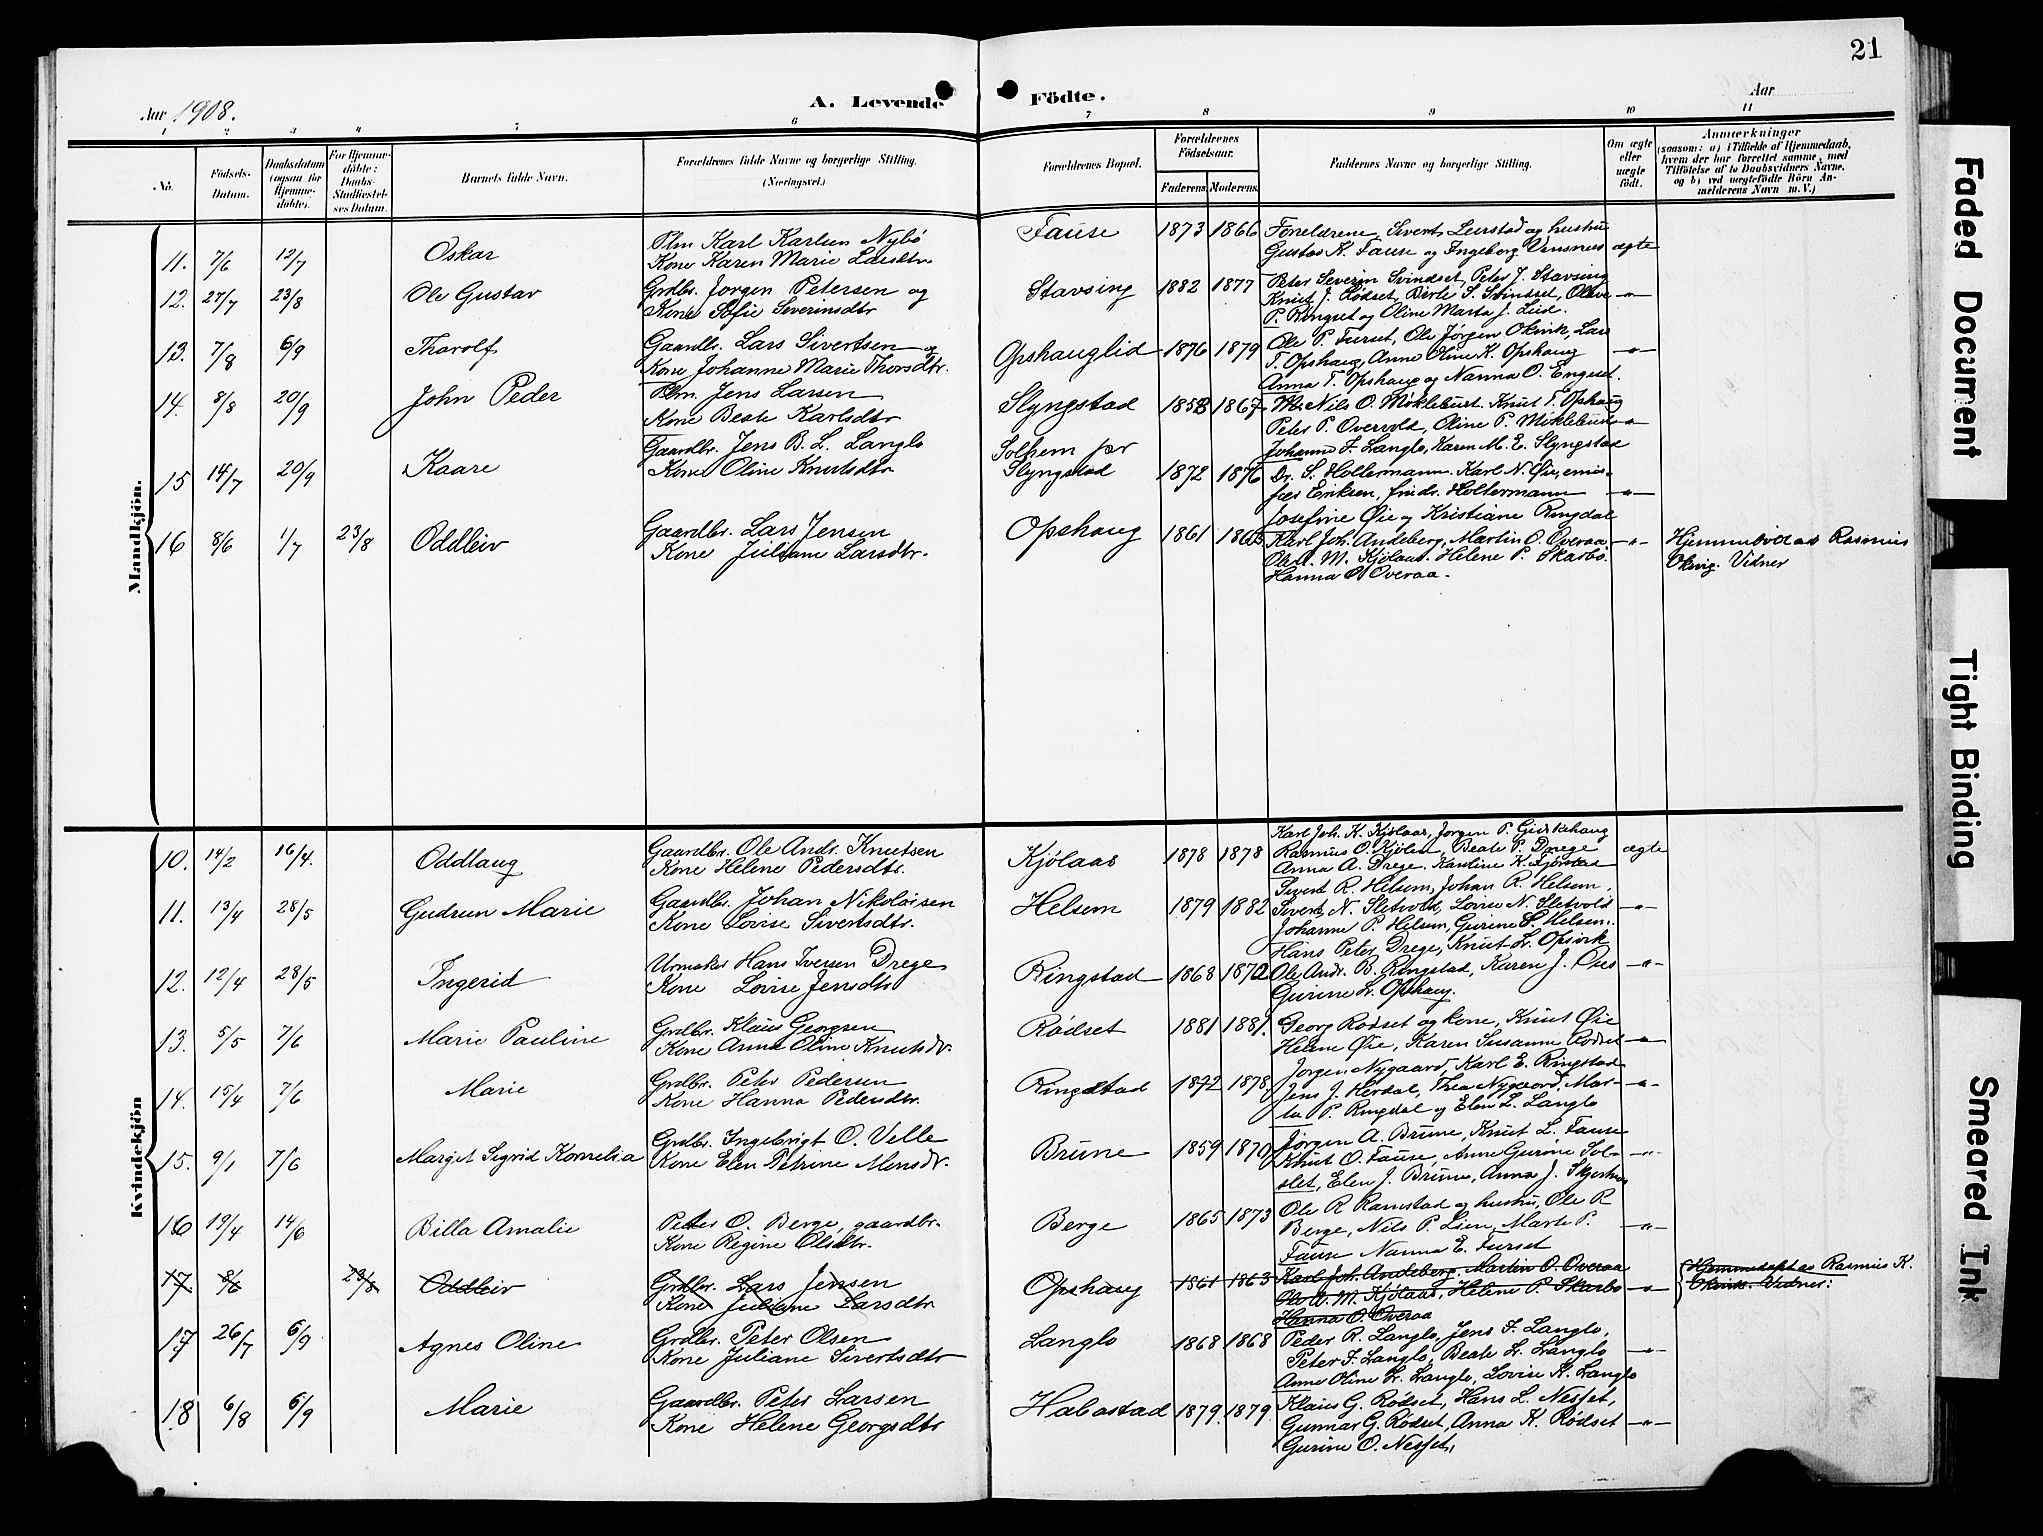 21
Aar 1908.
A. Levende Födte.
Aar
1 2 3 4 5 6 7 8 9 10 11
No.
Födsels-Datum.
Daabsdatum (ogsaa for Hjemme-döbte).
For Hjemme-döbte: Daabs-Stadfæstel-ses Datum.
Barnets fulde Navn.
Forældrenes fulde Navne og borgerlige Stilling.
(Næringsvei.)
Forældrenes Bopæl.
Forældrenes Födselsaar.
Faderens. Moderens.
Faddernes Navne og borgerlige Stilling.
Om ægte eller uægte födt.
Anmærkninger
(saasom: a) i Tilfælde af Hjemmedaab, hvem der har forrettet samme, med Tilföielse af to Daabsvidners Navne, og b) ved uægtefödte Börn An-melderens Navn m. V.)
Mandkjön.
11. 7/6 12/7 Oskar
Plm Karl Karlsen Nybö
Kone Karen Marie Larsdtr.
Fause 1873 1866
Forældrene, Sivert Leirstad og hustru
Gustav K. Fause og Ingeborg Vinsnes ægte
12. 27/7 23/8 Ole Gustav
Grdbr. Jørgen Petersen og
Kone Sofie Severinsdtr
Stavsing 1882 1877
Peter Severin Svindset, Peter J. Stavsing
Knut J. Rødset, Berte S. Svindset, Oline
P. Ringset og Oline Marta J. Lied. -"-
13. 7/8 6/9 Tharolf
Gaardbr. Lars Sivertsen og
Kone Johanne Marie Thorsdtr.
Opshauglid 1876 1879
Ole P. Furset, Ole Jørgen Olsvik, Lars
T. Opshaug, Anne Oline K. Opshaug
Anna T. Opshaug og Nanna O. Engeset. -"-
14. 8/8 20/9 John Peder
Plm. Jens Larsen
Kone Beate Karlsdtr
Slyngstad 1858 1867
Nils O. Mikleburst. Knut T. Opshaug
Peter P. Overvold, Oline P. Miklebust -"-
Johanne F. Langlo, Karen M. E. Slyngstad
15 14/7 20/9 Kaare
Gaardbr. Jens B. L. Langlo
Kone Oline Knutsdtr
Solhem pr
Slyngstad 1872 1876
Dr. S. Holtermann. Karl N. Øie, emis-
fæs Eriksen, frudr. Holtermann -"-
Josefine Øie og Kristiane Ringdal
16 8/6 1/7 23/8 Oddleiv
Gaardbr. Lars Jensen
Kone Juliane Larsdtr.
Opshaug 1861 1863
Karl Joh. Andeberg, Martin O. Overaa -"-
Ole A. M. Kjölaas. Helene P. Skarbö.
Hanna O. Overaa.
Rasmus
Olsvig. Vidner
Kvindekjön
10. 14/2 16/4. Oddlaug
Gaardbr. Ole Andr. Knutsen
Kone Helene Pedersdtr.
Kjölaas 1878 1878
Karl Joh. K. Kjölaas, Jørgen P. Giskehaug
Rasmus O. Kjölen, Beate P. Drege ægte
Anna A. Drege. Kauline K. Fjörstad
11. 13/4 28/5 Gudrun Marie
Gaardbr. Johan Nikolaisen
Kone Lovise Sivertsdtr.
Helsem 1879 1882
Sivert R. Helsem, Johan R. Helsem,
Sivert N. Sletvold, Lovise N. Sletvold -"-
Johanne P. Helsem, Gurine S. Helsem.
12. 12/4 28/5 Ingerid
Urmaker Hans Iversen Drege
Kone Lovise Jensdtr
Ringstad 1868 1872
Hans Peter Drege, Knut L. Opsvik
Ole Andr. B. Ringstad, Karen J. Oses -"-
Gurine L. Opshaug.
13. 5/5 7/6 Marie Pauline
Grdbr. Klaus Georgsen
Kone Anna Oline Knutsdr.
Rødset 1881 1881.
Georg Rødset og kone, Knut Øie
Helene Øie, Karen Susanne Rødset -"-
14. 15/4 7/6 Marie
Grdbr. Peter Pedersen
Kone Hanna Pedersdtr.
Ringstad 1872 1878
Jørgen Nygaard, Karl E. Ringstad
Jens J. Herdal, Thea Nygaard, Mar- -"-
ta P. Ringdal og Elen L. Langlo
15. 9/1 7/6 Margit Sigrid Kornelia
Grdbr. Ingebrigt O. Velle
Kone Elen Petrine Monsdr.
Brune 1859 1870
Jørgen A. Brune, Knut L. Fause
Knut O. Fause, Anne Gurine Sol- -"-
slet, Elen J. Brune, Anna J. Skjortnes
16 19/4 14/6 Billa Amalie
Petter O. Berge, gaardbr.
Kone Regine Olsdtr.
Berge 1865 1873
Ole R Ramstad og hustru, Ole R
Berge, Nils P. Lien, Marte P. -"-
Fause Nanna E. Furset
17 8/6 23/8 Oddleiv
Grdbr. Lars Jensen
Kone Juliane Larsdtr
Opshaug 1861 1863
Karl Joh. Andeberg. Martin O. Overaa
Ole A. M. Kjölaas, Helene P. Skarbö -"-
Hanna O. Overaa
Hjemmedöpt av Rasmus K.
Olsvik. Vidner:
17 26/7 6/9 Agnes Oline
Grdbr. Peter Olsen
Kone Juliane Sivertsdtr
Langlo 1868 1868
Peder R. Langlo, Jens F. Langlo,
Peter F. Langlo, Beate L. Langlo -"-
Anne Oline L. Langlo, Lovise K. Langlo
18 6/8 6/9 Marie
Gaardbr. Peter Larsen
Kone Helene Georgsdtr
Habostad 1879 1879
Klaus G. Rødset, Hans L. Nesset,
Gunnar G. Rødset, Anna K. Rødset -"-
Gurine O. Nesset,
Faded Document
Tight Binding
Smeared Ink